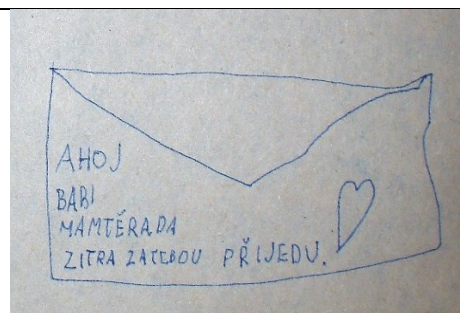 AHOJ
BABI
MAMTĚRADA
ZITRA ZATEBOU PŘIJEDU.